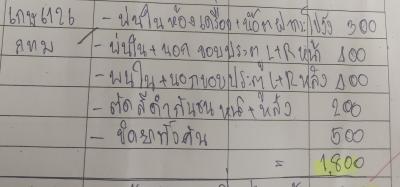 - พ่นในห้องเครื่อง+น๊อต ฝากระโปรง 300
กทม - พ่นใน+นอก ขอบประตู L+R หน้า 400
- พ่นใน+นอกขอบประตู L+R หลัง 400
- ตัดสีดำกันชน หน้า+หลัง 200
- ขัดยาทั้งคัน 500
= 1,800